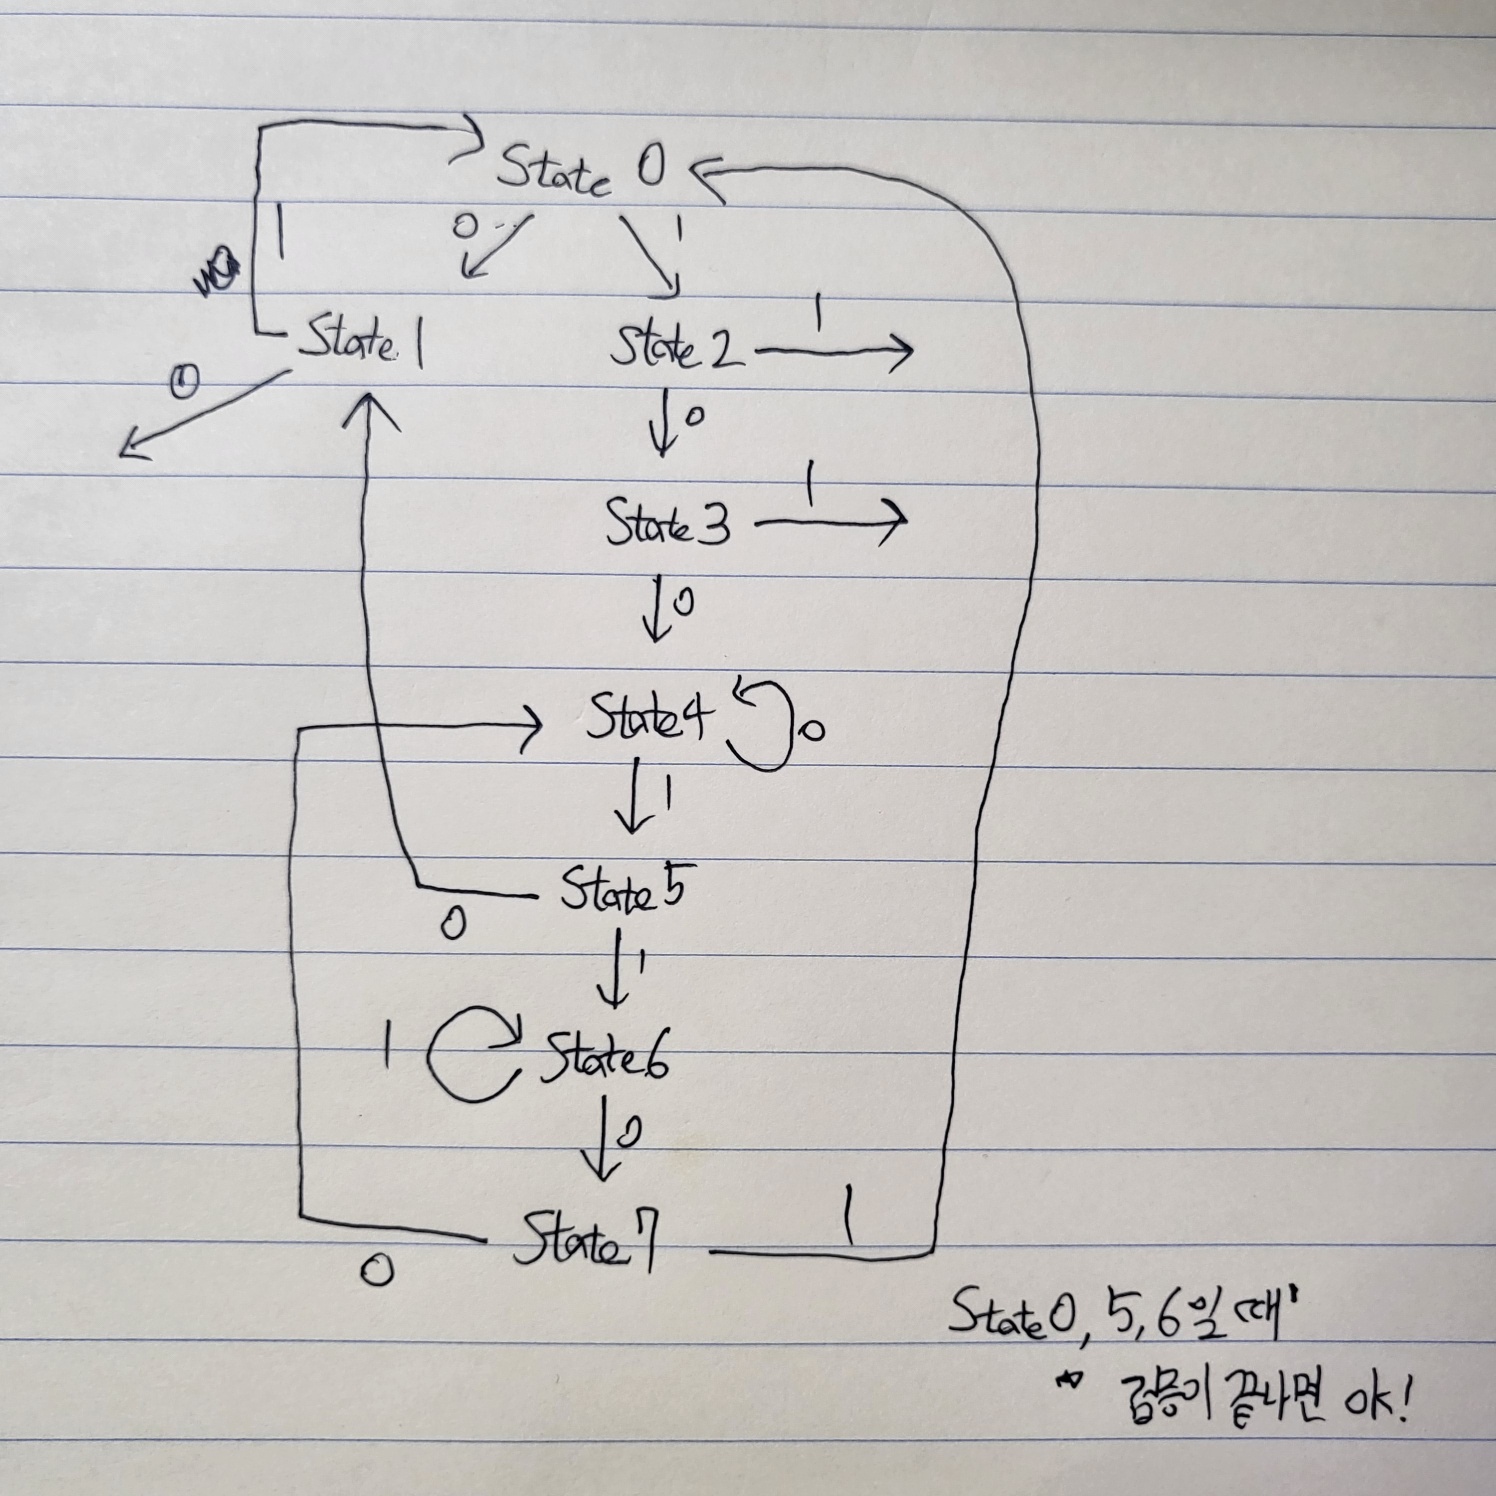 State 0
0 1
1
State 1 State 2 1
0 0
State 3 1
0
State 4 0
1
State 5
0
1
1 State 6
0
State 7 1
0
State 0, 5, 6일 때
검증이 끝나면 OK!